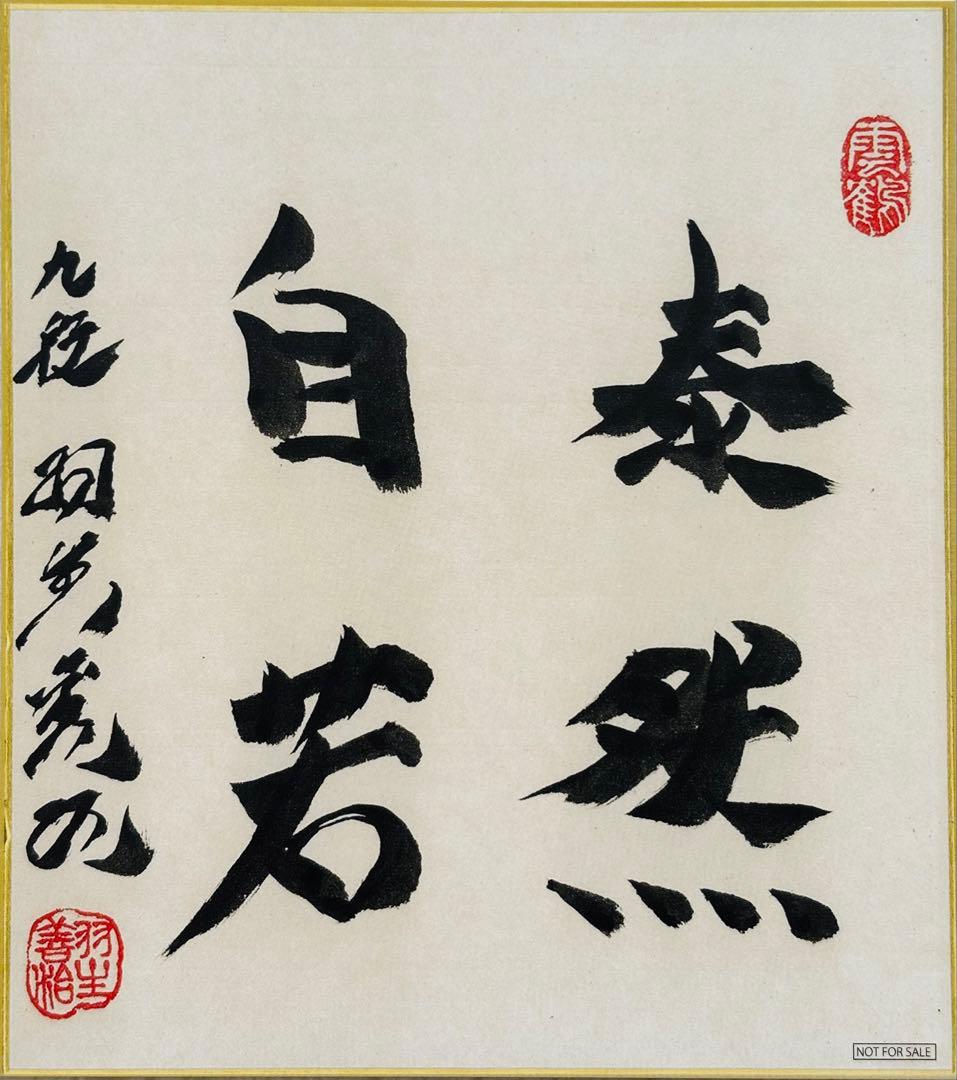 雲鶴
泰然
自若
九段 羽生善治
羽生
善治
NOT FOR SALE